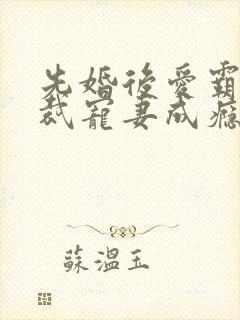 先婚後愛霸
裁寵妻成癮
蘇溫玉